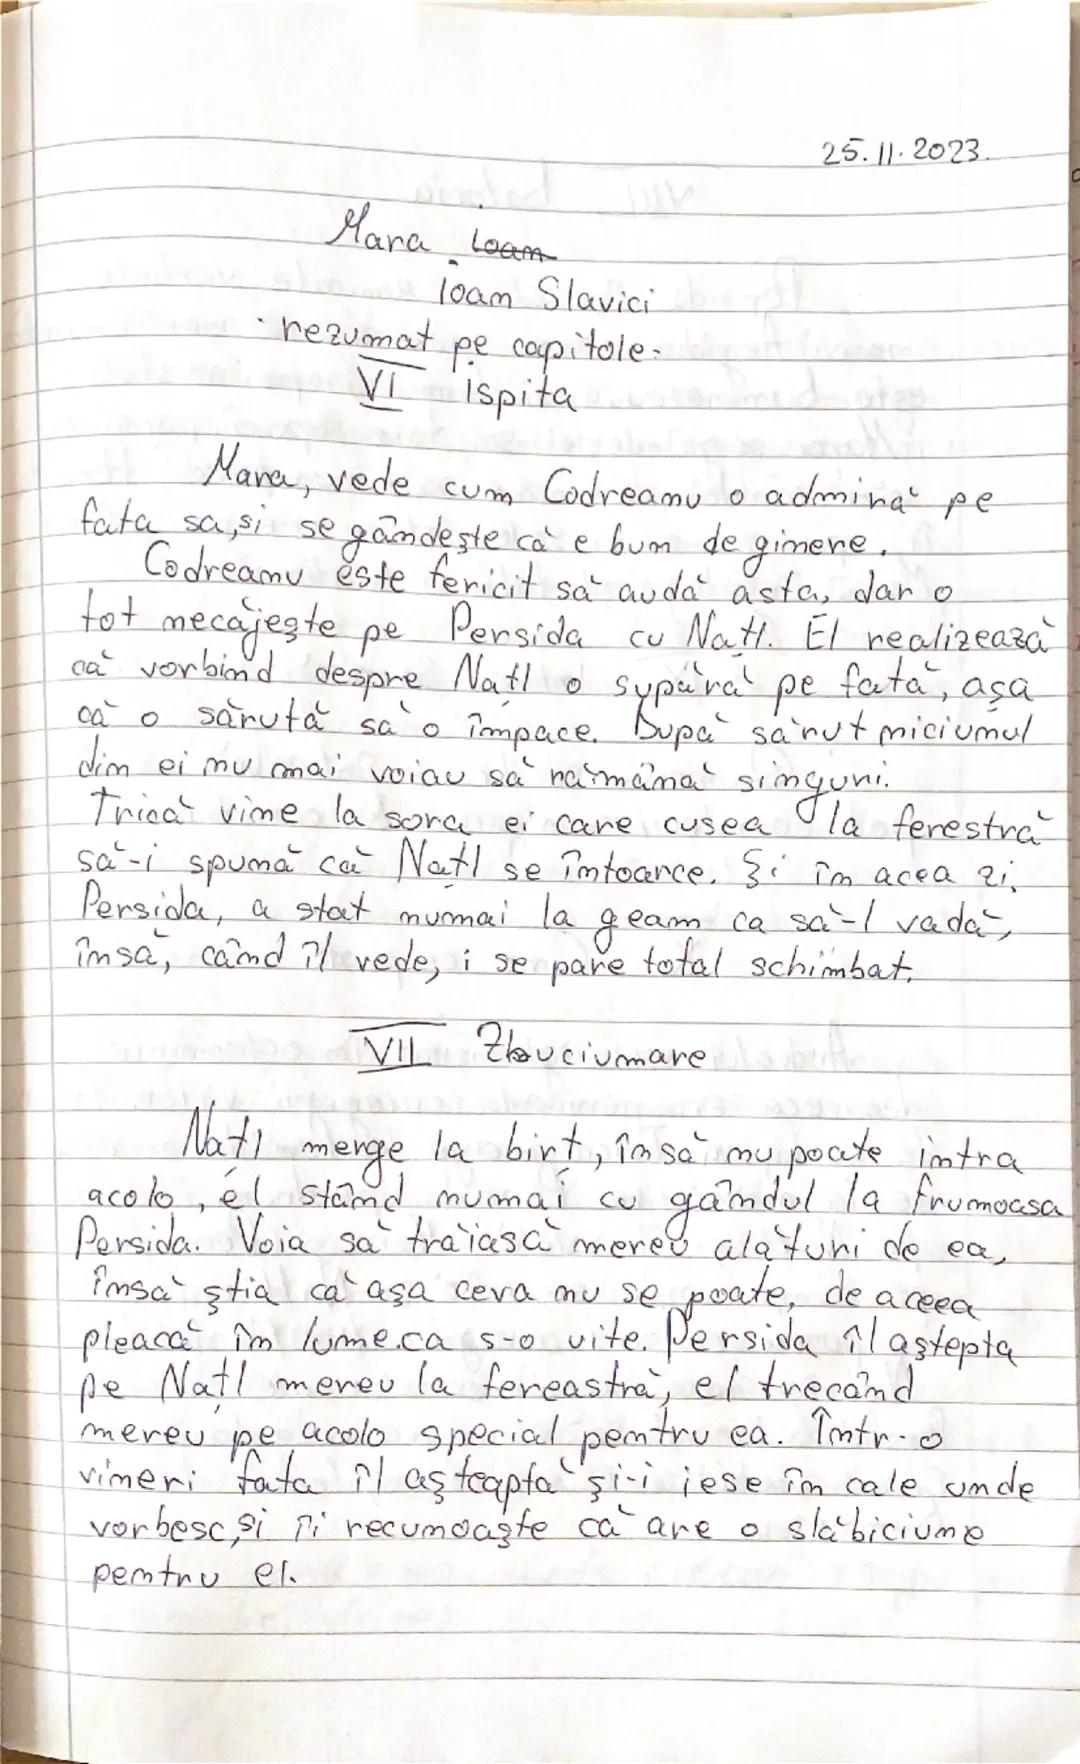 25.11.2023.
Mara Ioan
Ioan Slavici
- rezumat pe capitole -
VI Ispita
Mara, vede cum Codreanu o admiră pe
fata sa, și se gândește că e bun de ginere.
Codreanu este fericit să audă asta, dar o
tot necăjește pe Persida cu Națl. El realizează
că vorbind despre Națl o supără pe fată, așa
că o sărută să o împace. După sărut niciunul
din ei nu mai voiau să rămână singuri.
Trică vine la sora ei care cusea la ferestră
să-i spună că Națl se întoarce. Și în acea zi,
Persida, a stat numai la geam ca să-l vadă,
însă, când îl vede, i se pare total schimbat.
VII Zbuciumare
Națl merge la birt, însă nu poate intra
acolo, el stând numai cu gândul la frumoasa
Persida. Voia să trăiasă mereu alături de ea,
însă știa că așa ceva nu se poate, de aceea
pleacă în lume ca s-o uite. Persida îl aștepta
pe Națl mereu la fereastră, el trecând
mereu pe acolo special pentru ea. Într-o
vineri fata îl așteaptă și-i iese în cale unde
vorbesc, și îi recunoaște că are o slăbiciune
pentru el.